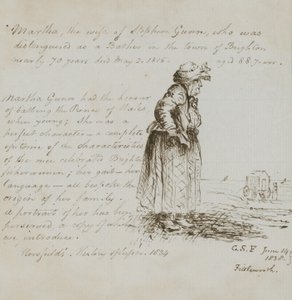 Martha, the wife of Stephen Gunn, who was
distinguished as a Bather in the town of Brighton
nearly 70 years died May 2. 1815. aged 88 years.
Martha Gunn had the honour
of bathing the Prince of Wales
when young; She was a
perfect character – a complete
epitome of the characteristics
of the once celebrated Bright
her garb – her
language – all bespoke the
origin of her family.
A portrait of her has been
preserved a copy of which
we introduce.
Horsfield's History of Sussex. 1834
C. S. F. June 14
1838.
Fittleworth.